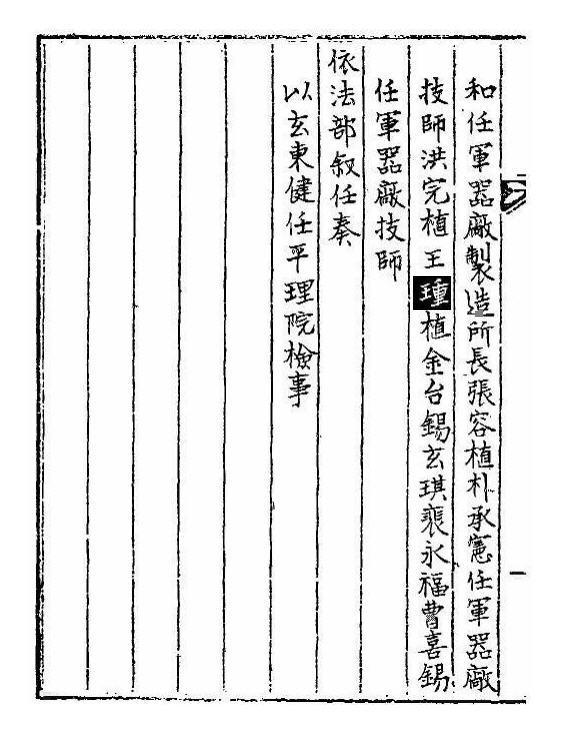 和任軍器廠製造所長張容植朴承憲任軍器廠
技師洪完植王瑾植金台錫玄琪裴永福曹喜錫
任軍器廠技師
依法部叙任奏
以玄東健任平理院檢事